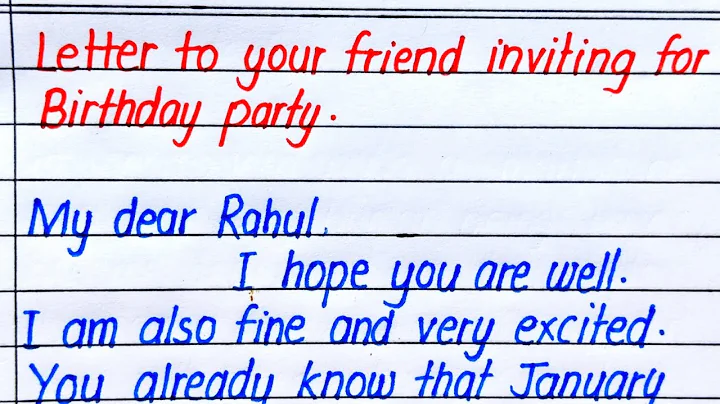 Letter to your friend inviting for
Birthday party.
My dear Rahul,
I hope you are well.
I am also fine and very excited.
You already know that January